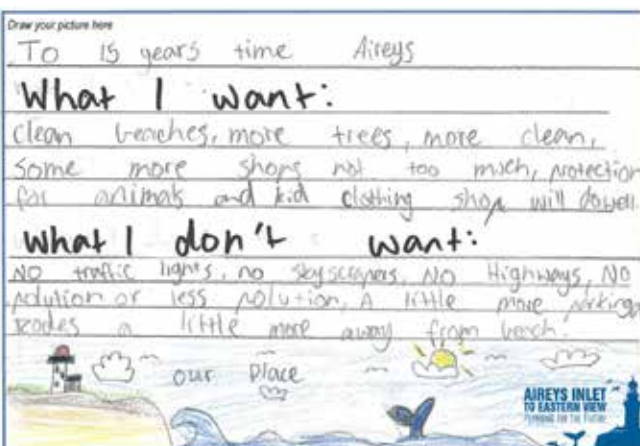 Draw your picture here
To 15 years time Aireys
What I want:
clean beaches, more trees, more clean,
some more shops not too much, protection
for animals and kid clothing shop will do well.
What I don't want:
NO traffic lights, no skyscrapers, NO Highways, NO
polution or less polution, A little more parking,
roades a little more away from beach.
our place
AIREYS INLET
TO EASTERN VIEW
PLANNING FOR THE FUTURE